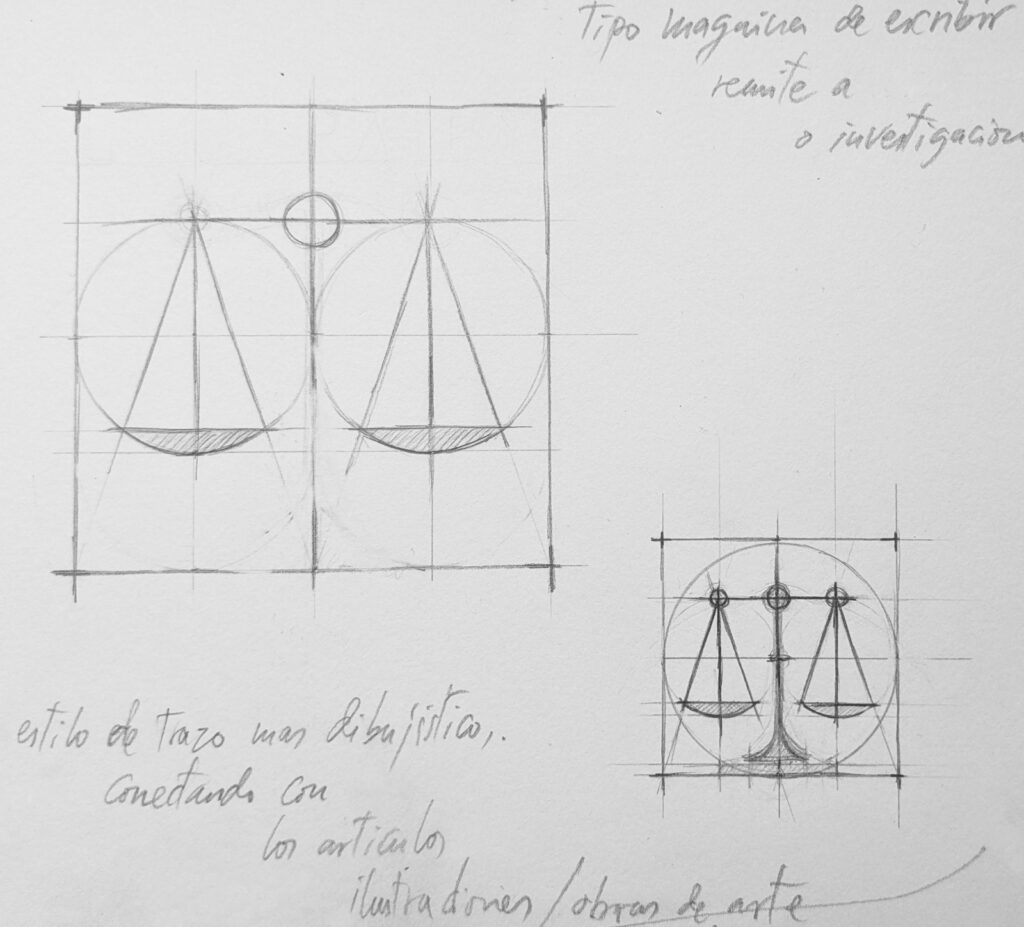 Tipo maquina de escribir
remite a
o investigacion
estilo de trazo mas dibujistico,.
conectando con
los articulos
ilustraciones/obras de arte